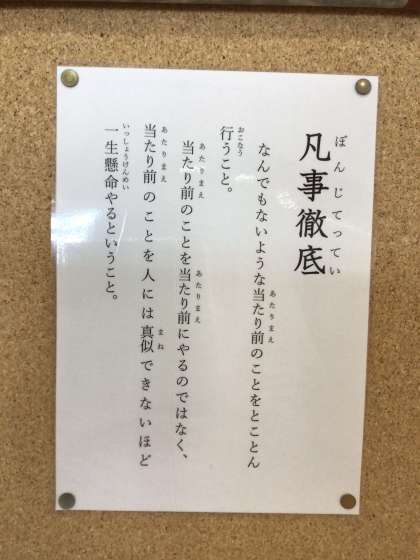 凡事徹底
ぼんじてってい
なんでもないような当たり前のことをとことん
あたりまえ
行うこと。
おこなう
当たり前のことを当たり前にやるのではなく、
あたりまえ
あたりまえ
当たり前のことを人には真似できないほど
あたりまえ
まね
一生懸命やるということ。
いっしょうけんめい